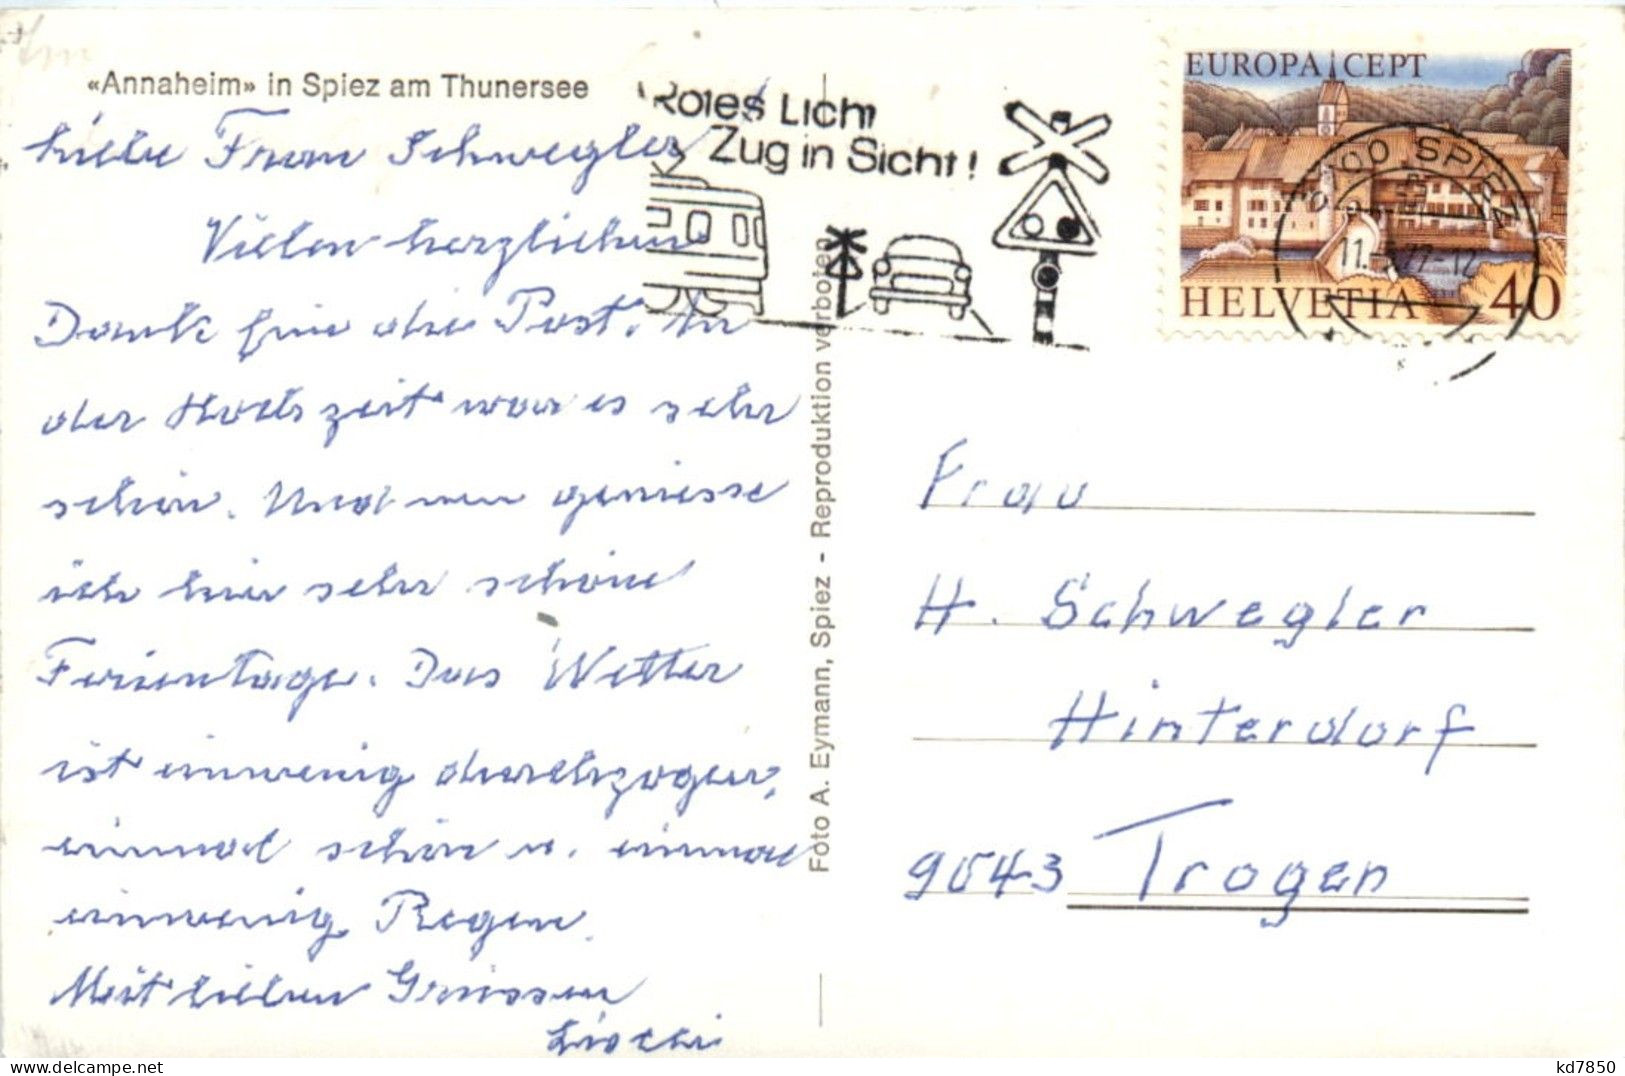 «Annaheim» in Spiez am Thunersee
Rotes Licht
Zug in Sicht!
EUROPA CEPT
HELVETIA 40
3700 SPIEZ
11.
77-12
Liebe Frau Schwegler
Vielen herzlichen
Dank für die Post. An
der Hochzeit war es sehr
schön. Und nun geniesse
ich hier sehr schöne
Ferientage. Das Wetter
ist einwenig durchzogen,
einmal schön u. einmal
einwenig Regen.
Mit lieben Grüssen
Foto A. Eymann, Spiez - Reproduktion verboten
Frau
H. Schwegler
Hinterdorf
9043 Trogen
kd7850